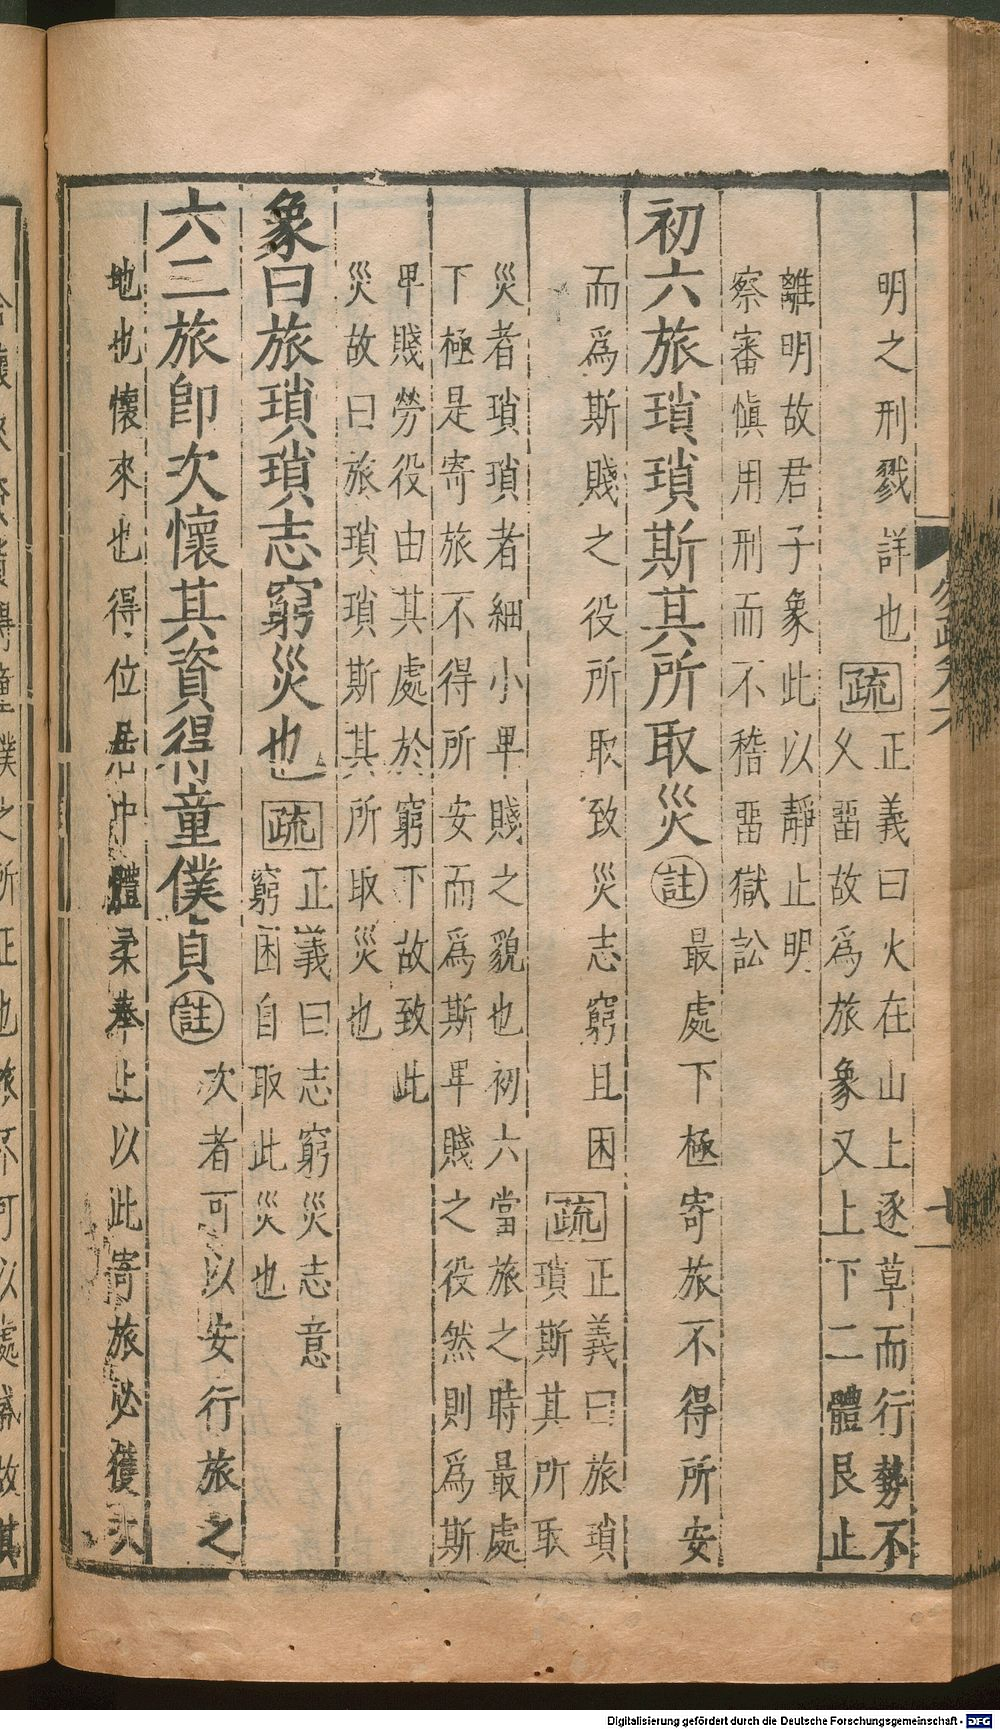 明之刑戮詳也疏正義曰火在山上逐草而行勢不
久畱故爲旅象又上下二體艮止
離明故君子象此以靜止明
察審愼用刑而不稽畱獄訟
初六旅瑣瑣斯其所取災註最處下極寄旅不得所安
而爲斯賤之役所取致災志窮且困疏正義曰旅瑣
瑣斯其所取
災者瑣瑣者細小卑賤之貌也初六當旅之時最處
下極是寄旅不得所安而爲斯卑賤之役然則爲斯
卑賤勞役由其處於窮下故致此
災故曰旅瑣瑣斯其所取災也
象曰旅瑣瑣志窮災也疏正義曰志窮災志意
窮困自取此災也
六二旅卽次懷其資得童僕貞註次者可以安行旅之
地也懷來也得位居中體柔奉上以此寄旅必獲次
僕之所正也旅不可以處盛故其
Digitalisierung gefördert durch die Deutsche Forschungsgemeinschaft - DFG